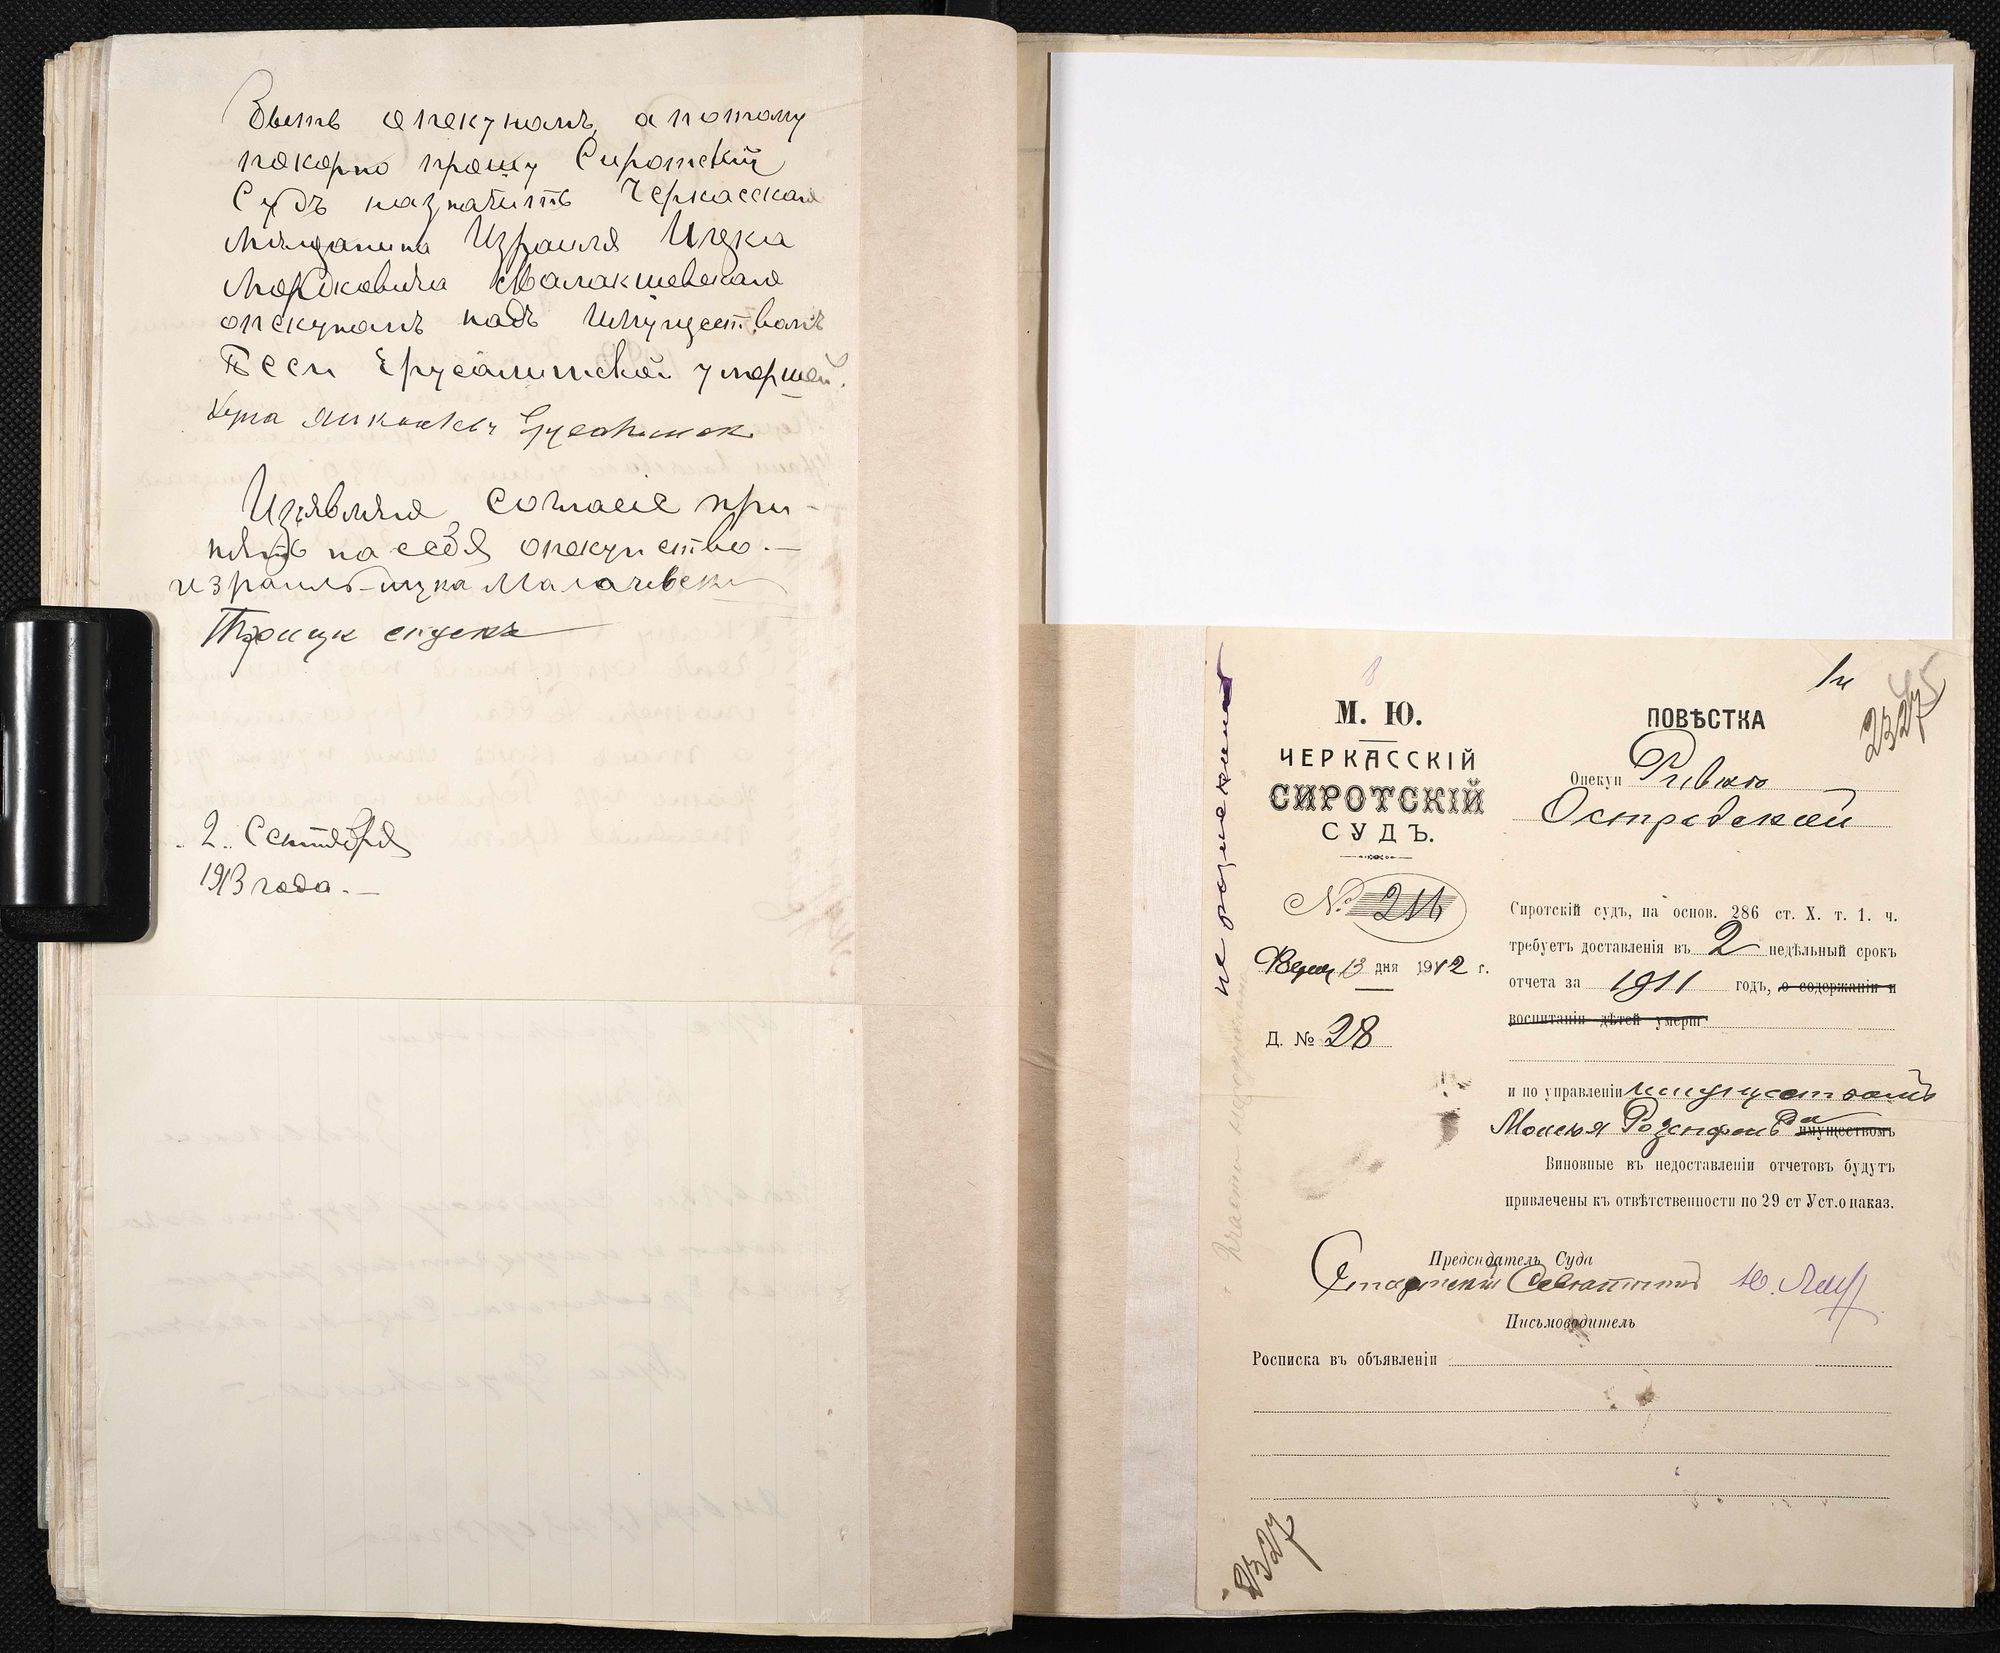 быть опекуномъ, а потому
покорно прошу Сиротскій
Судъ назначить Черкасскаго
мѣщанина Израиля Ицка
Мордковича
опекуномъ надъ имуществомъ
Беси Ерусалимской умершей.
Изъявляю согласіе при-
нять на себя опекунство. —
Израиль-Ицка
2. Сентября
1913 года. —
не розысканна
1ч
2327
М. Ю.
ЧЕРКАССКІЙ
СИРОТСКІЙ
СУДЪ.
№ 216
13 дня 1912 г.
Д. № 28
ПОВѢСТКА
Опекун Ривкю
Острожской
Сиротскій судъ, на основ. 286 ст. X. т. 1. ч.
требуетъ доставленія въ 2 недѣльный срокъ
отчета за 1911 годъ, о содержаніи и
воспитаніи дѣтей умерш
и по управленію имуществомъ
Моисея Розенфельда имуществомъ
Виновные въ недоставленіи отчетовъ будутъ
привлечены къ отвѣтственности по 29 ст Уст. о наказ.
Предсидатель Суда
Письмоводитель
Росписка въ объявленіи
2327